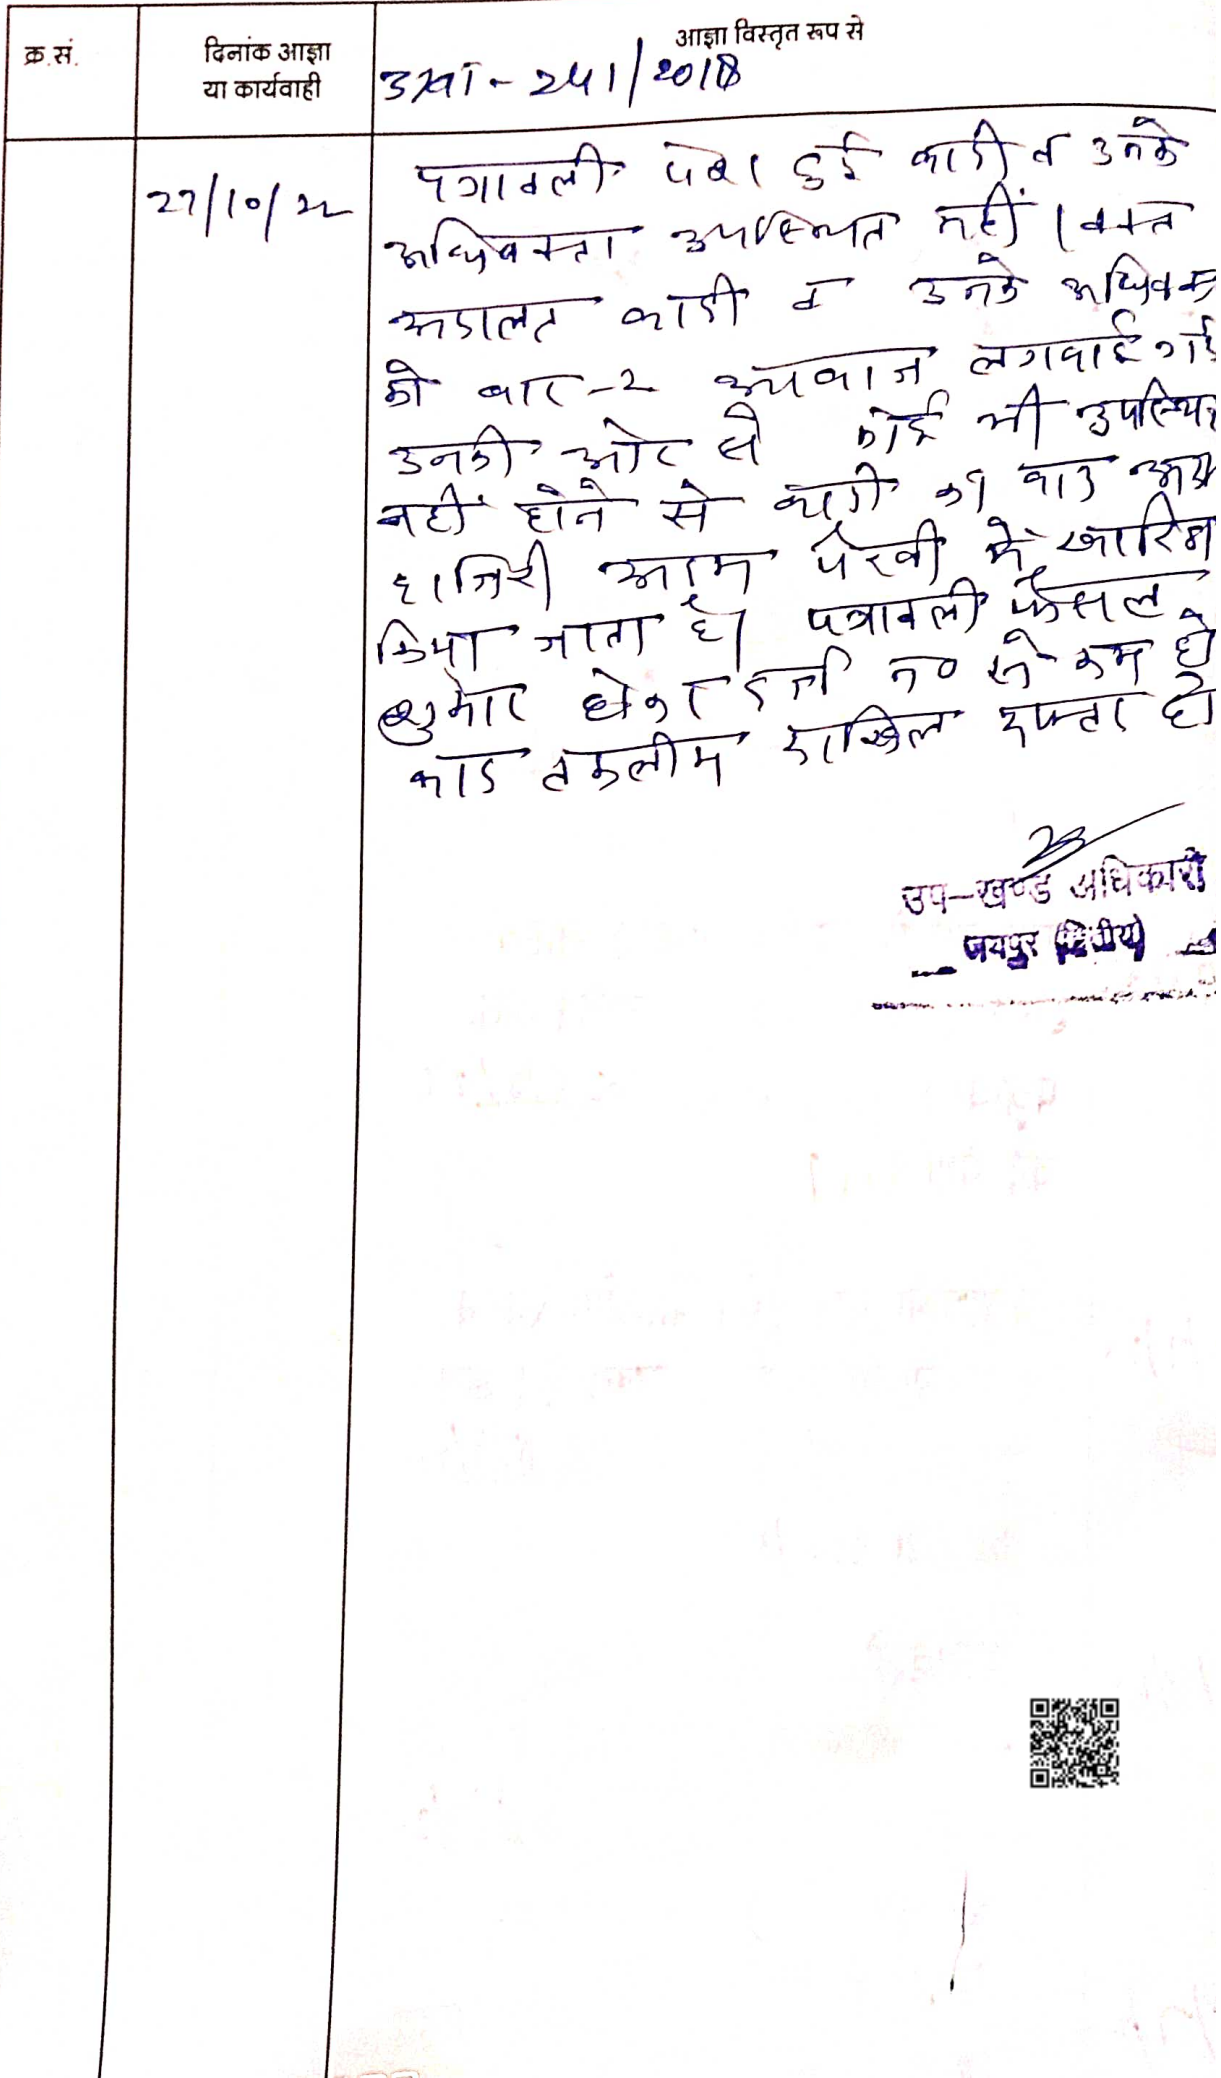 क्र.सं.
दिनांक आज्ञा
या कार्यवाही
आज्ञा विस्तृत रूप से
241/2018
27/10/22
पत्रावली पेश हुई वादी व उनके
अधिवक्ता उपस्थित नहीं । वक्त
अदालत वादी व उनके अधिवक्
को बार-2 आवाज लगवाई गई
उनकी ओर से कोई भी उपस्थित
नहीं होने से वादी का वाद अदम
हाजिरी अदम पैरवी में खारिज
किया जाता है। पत्रावली फैसल
शुमार होकर दर्ज नं० से कम हो
बाद तकमील दाखिल दफ्तर हो
उप-खण्ड अधिकारी
जयपुर (द्वितीय)